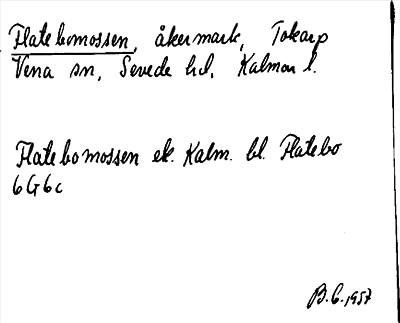 Flatebomossen, åkermark, Tokarp
Vena sn, Sevede hd, Kalmar l.
Flatebomossen ek. Kalm. bl. Flatebo
6G6c
B.C. 1957